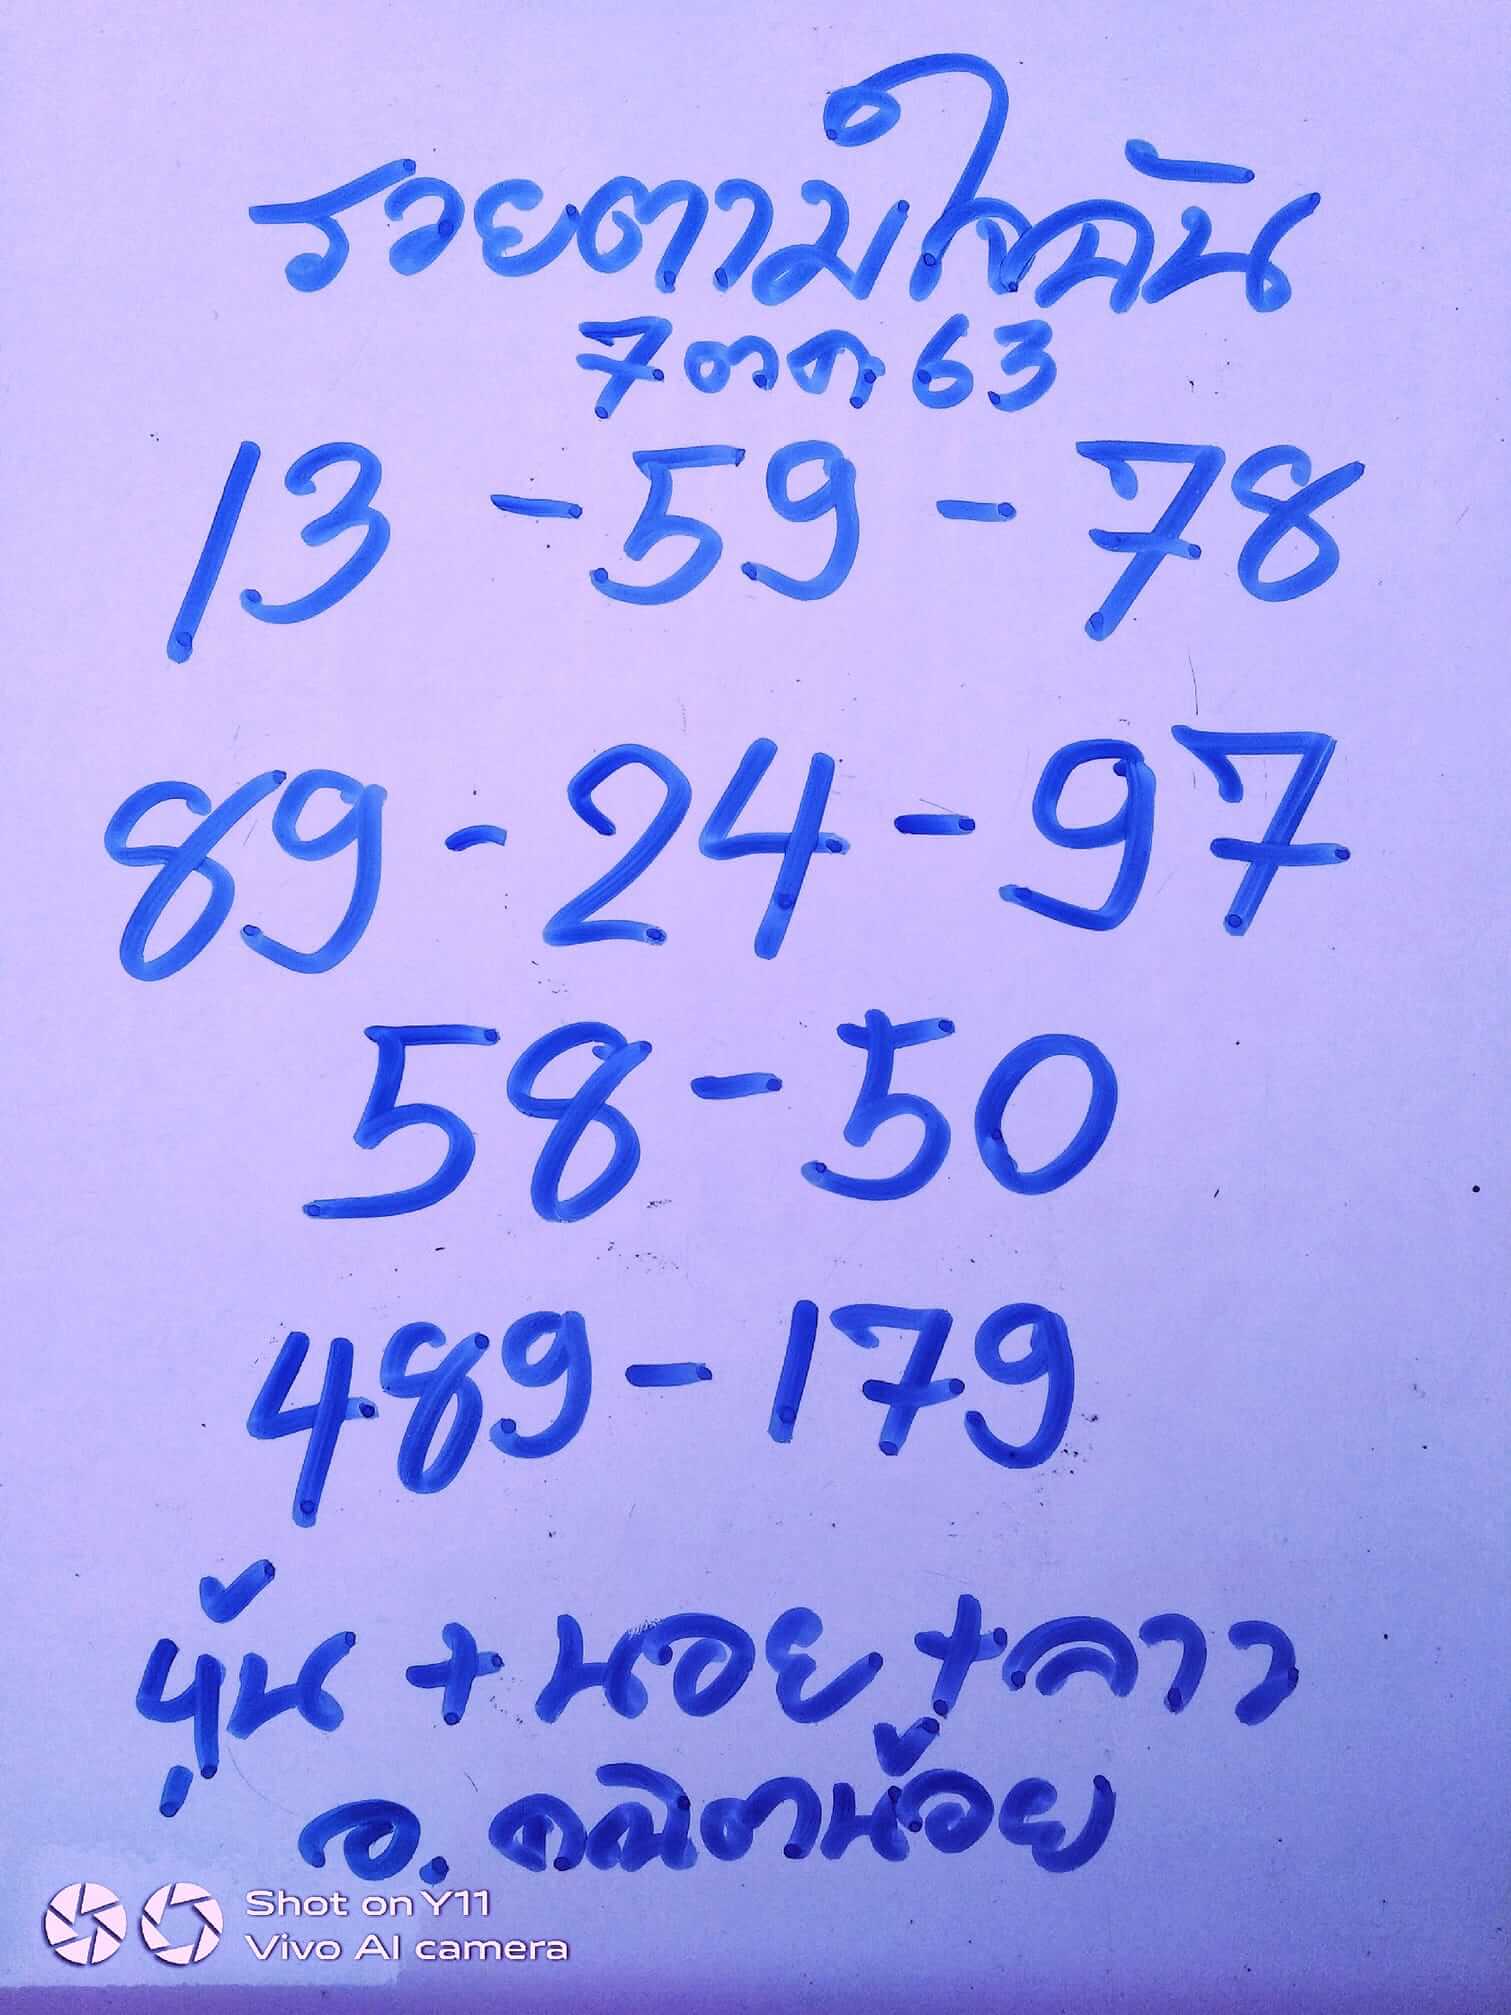 รวยตามใจฉัน
7 ตค 63
13 - 59 - 78
89 - 24 - 97
58 - 50
489 - 179
หุ้น + นอย + ลาว
อ. คณิตน้อย
Shot on Y11
Vivo AI camera